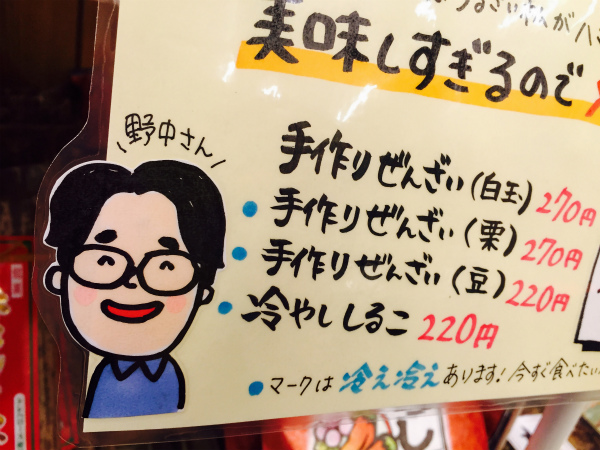 うるさい私が
美味しすぎるので
野中さん
手作りぜんざい(白玉) 270円
• 手作りぜんざい(栗) 270円
• 手作りぜんざい(豆) 220円
• 冷やししるこ 220円
• マークは冷え冷えあります!今すぐ食べたい